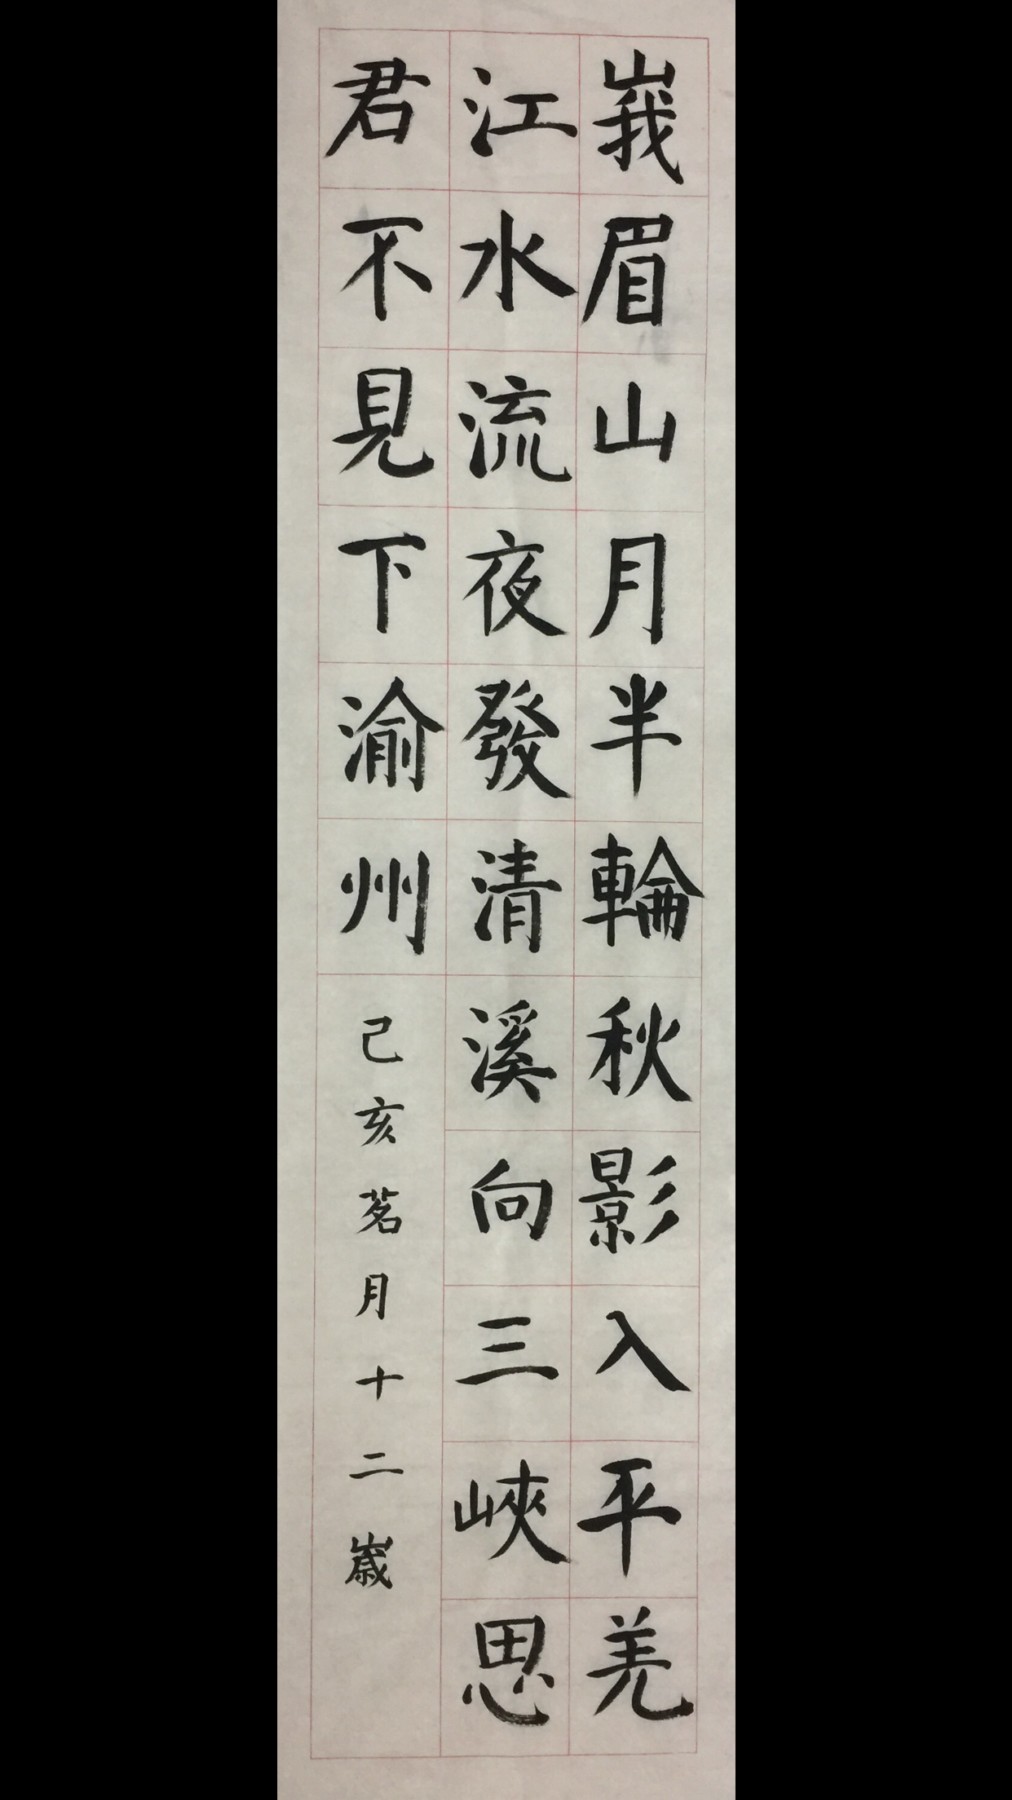 峩眉山月半輪秋影入平羌
江水流夜發清溪向三峽思
君不見下渝州
己亥茗月十二歲